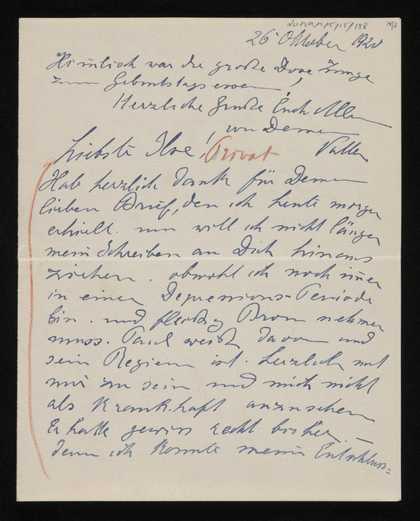 26 Oktober
Heimlich war die große Dose Zunge
zum Geburtstags
Herzliche Grüße Euch Allen
von Deinem
Vater
Liebste Ilse! Privat
Hab herzlich Dank für Deinen
lieben Brief, den ich heute morgen
erhielt. nun will ich nicht länger
mein Schreiben an Dich hinaus
ziehen. obwohl ich noch immer
in einer Depressions-Periode
bin und fleißig Brom nehmen
muss. Paul weiß davon und
sein Regiem ist. herzlich mit
mir zu sein und mich nicht
als Krankhaft anzusehen
Er hatte gewiss recht bisher. —
denn ich konnte meine Entschluss=